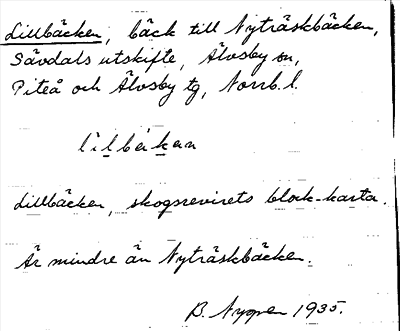 Lillbäcken, bäck till Nyträskbäcken,
Sävdals utskifte, Älvsby sn,
Piteå och Älvsby tg, Norrb. l.
lìlbäkan
Lillbäcken, skogsrevirets block-karta.
Är mindre än Nyträskbäcken.
B. Nygren 1935.